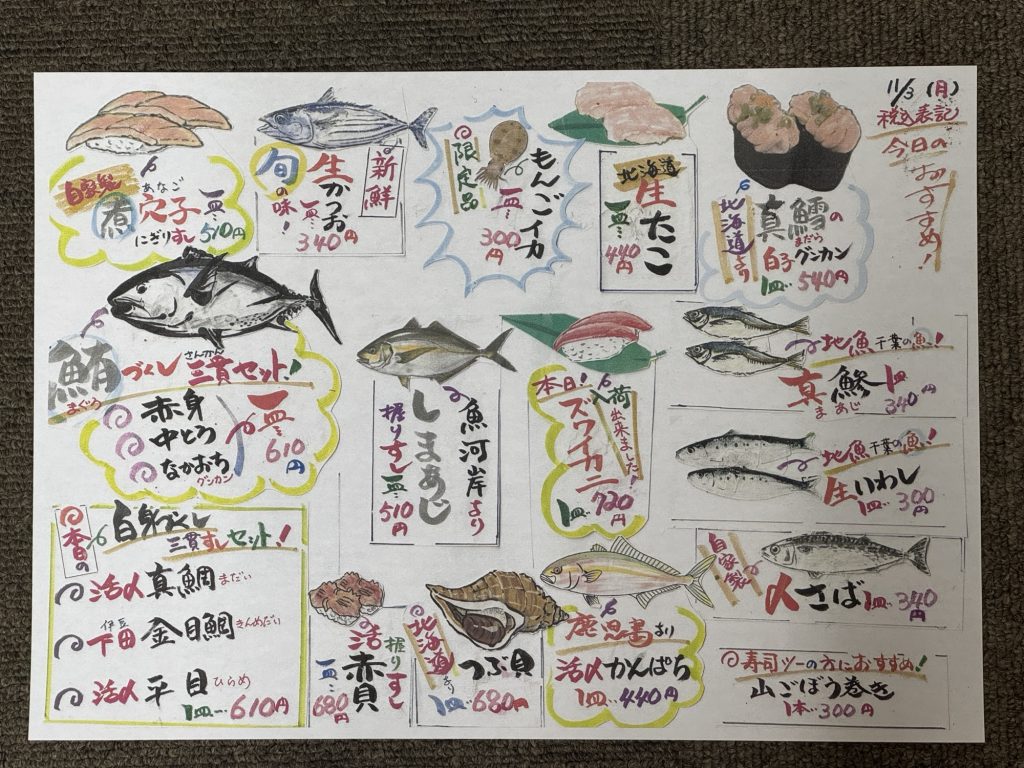 11/3(月)
税込表記
今日の
おすすめ!
自家製
煮
あなご
穴子
にぎりすし
一皿 510円
旬の味!
新鮮
生かつお
一皿 340円
限定品
もんごイカ
一皿 300円
北海道
生たこ
一皿 440円
北海道より
真鱈の
まだら
白子グンカン
1皿 540円
鮪づくし
まぐろ
さんかん
三貫セット!
赤身
中とろ
なかおち
グンカン
一皿 610円
魚河岸より
しまあじ
握りすし 一皿 510円
本日!
入荷出来ました!
ズワイカニ
1皿 720円
地魚 千葉の魚!
真鯵 1皿
まあじ 340円
地魚 千葉の魚!
生いわし
1皿 300円
自家製
〆さば 1皿 340円
寿司ツーの方におすすめ!
山ごぼう巻き
1本 300円
本日の
白身づくし
三貫すしセット!
活〆 真鯛 まだい
伊豆
下田 金目鯛 きんめだい
活〆 平目 ひらめ
1皿 610円
握りすし
活赤貝
一皿 680円
北海道より
つぶ貝
1皿 680円
鹿児島より
活〆かんぱち
1皿 440円